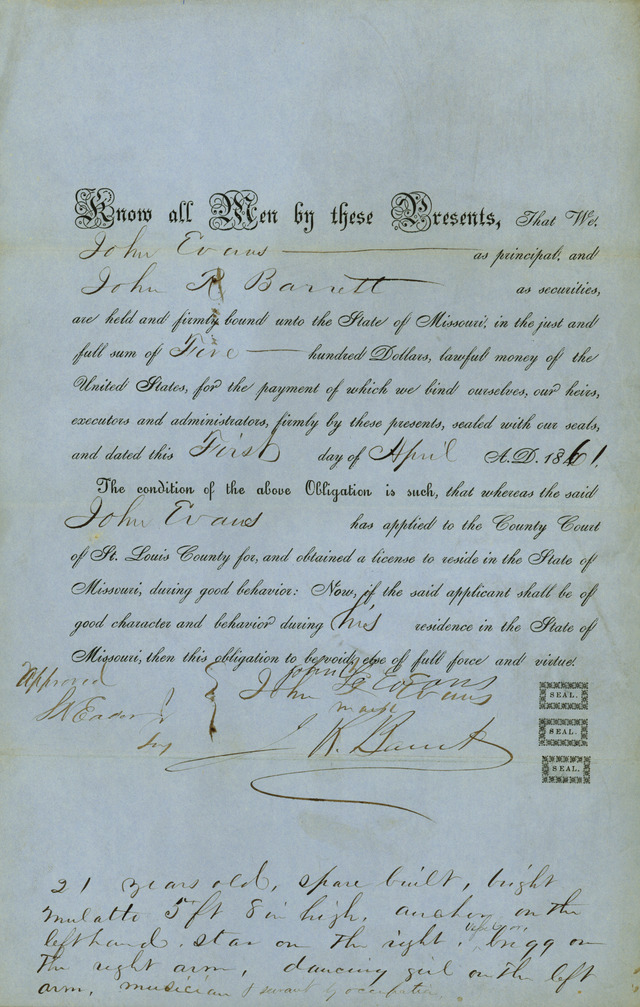 Know all Men by these Presents, That We,
John Evans as principal, and
John R Barrett as securities,
are held and firmly bound unto the State of Missouri, in the just and
full sum of Five hundred Dollars, lawful money of the
United States, for the payment of which we bind ourselves, our heirs,
executors and administrators, firmly by these presents, sealed with our seals,
and dated this First day of April A.D. 1861.
The condition of the above Obligation is such, that whereas the said
John Evans has applied to the County Court
of St. Louis County for, and obtained a license to reside in the State of
Missouri, during good behavior: Now, if the said applicant shall be of
good character and behavior during his residence in the State of
Missouri, then this obligation to be void, else of full force and virtue.
Approved
John Evans
John Evans SEAL.
mark
SEAL.
R. Barrett
SEAL.
21 years old, spare built, bright
mulatto 5 ft 8 in high, anchor on the
left hand, star on the right, brigg on
the right arm, dancing girl on the left
arm, musician & servant by occupation